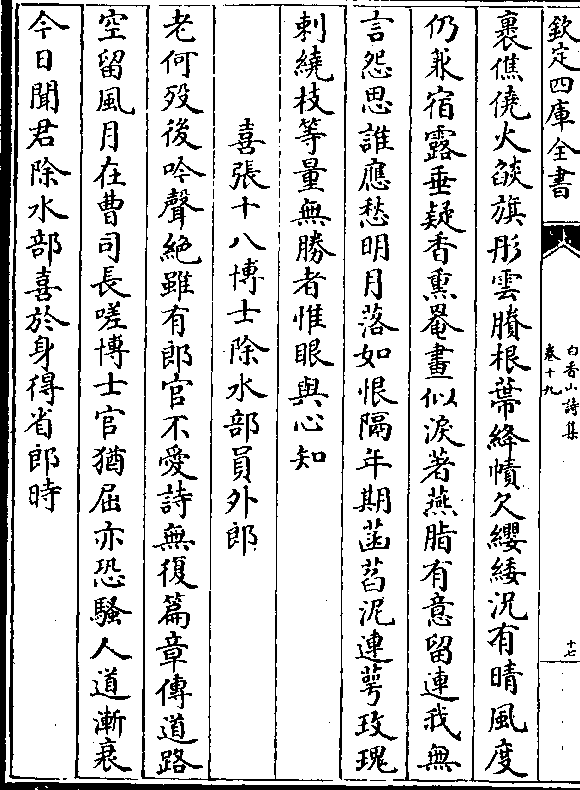 欽定四庫全書
白香山詩集
卷十九
十七
裹僬僥火燄旗彤雲賸根蔕絳幘欠纓緌況有晴風度
仍兼宿露垂疑香熏罨畫似淚著燕脂有意留連我無
言怨思誰應愁明月落如恨隔年期菡萏泥連萼玫瑰
刺繞枝等量無勝者惟眼與心知
喜張十八博士除水部員外郎
老何殁後吟聲絶雖有郎官不愛詩無復篇章傳道路
空留風月在曹司長嗟博士官猶屈亦恐騷人道漸衰
今日聞君除水部喜於身得省郎時